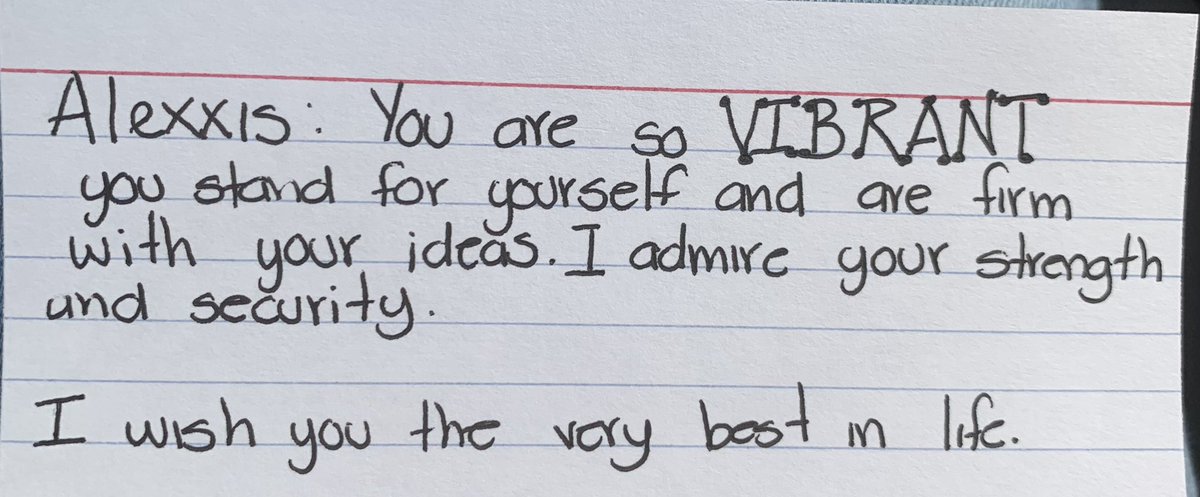 Alexxis: You are so VIBRANT
you stand for yourself and are firm
with your ideas. I admire your strength
and security.
I wish you the very best in life.